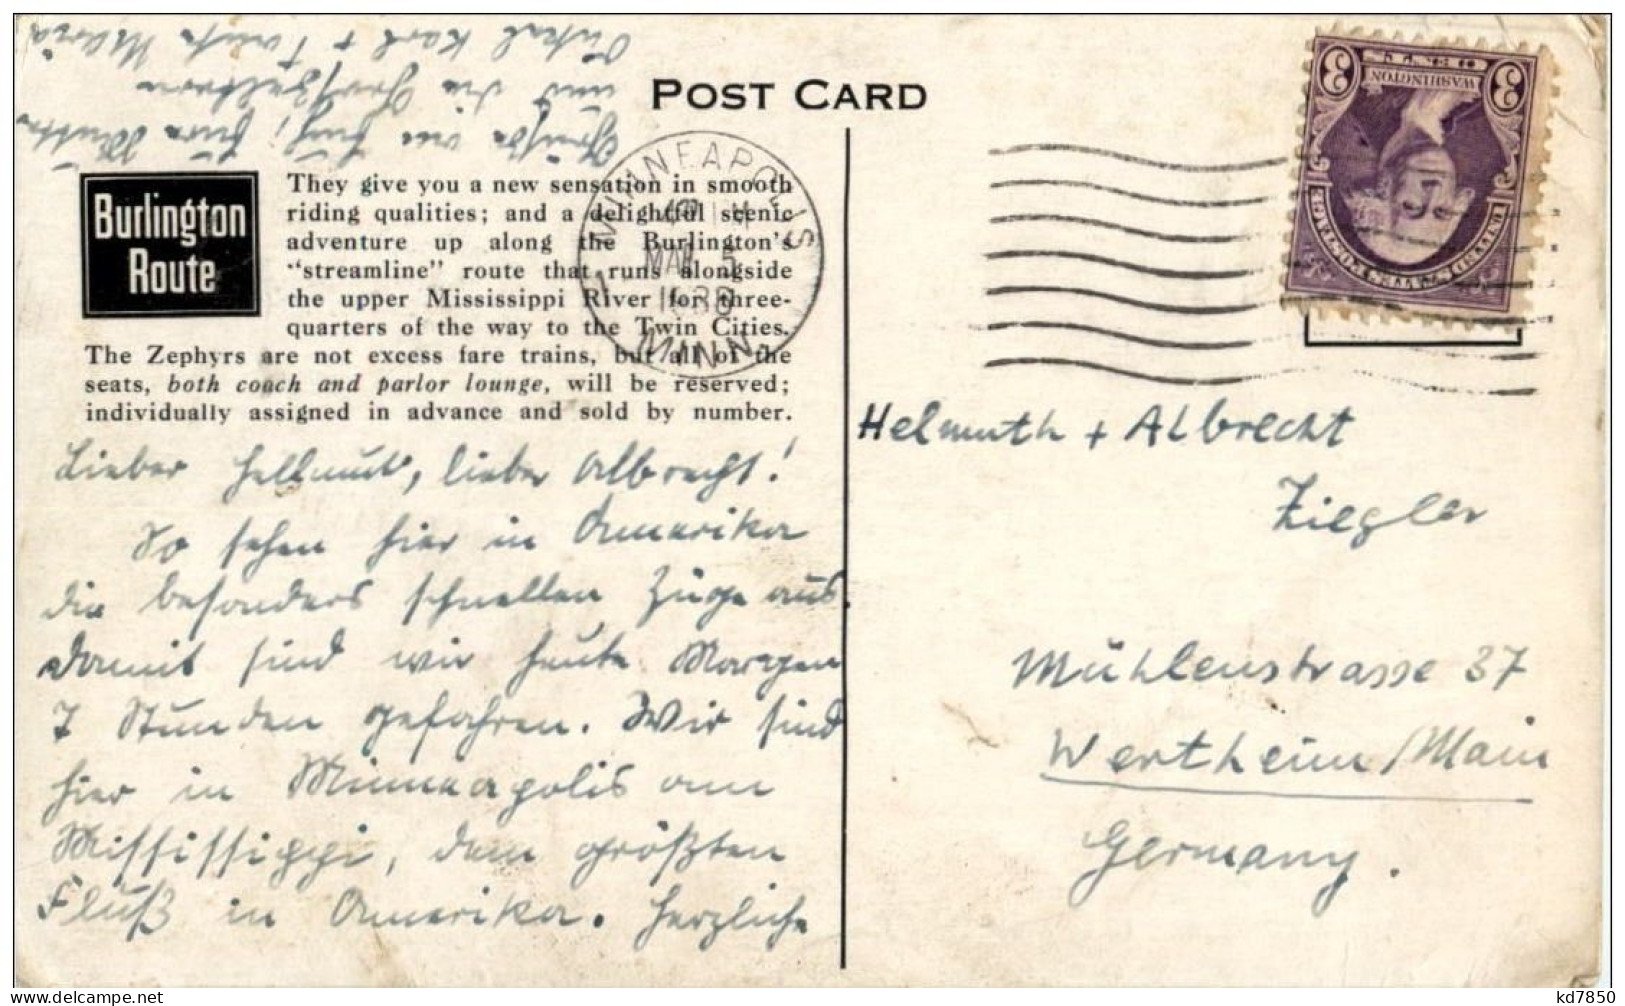 POST CARD
Burlington
Route
They give you a new sensation in smooth
riding qualities; and a delightful scenic
adventure up along the Burlington's
"streamline" route that runs alongside
the upper Mississippi River for three-
quarters of the way to the Twin Cities.
The Zephyrs are not excess fare trains, but all of the
seats, both coach and parlor lounge, will be reserved;
individually assigned in advance and sold by number.
MINNEAPOLIS
MAR 5
MINN.
UNITED STATES POSTAGE
WASHINGTON
3 CENTS 3
Lieber Hellmut, lieber Albrecht!
So sehen hier in Amerika
die besonders schnellen Züge aus.
Damit sind wir heute Morgen
7 Stunden gefahren. Wir sind
hier in Minneapolis am
Mississippi, dem größten
Fluß in Amerika. Herzliche
Grüße an Euch, Eure Mutter
und die Großeltern
Onkel Karl + Tante Maria
Helmuth + Albrecht
Ziegler
Mühlenstrasse 37
Wertheim/Main
Germany.
kd7850